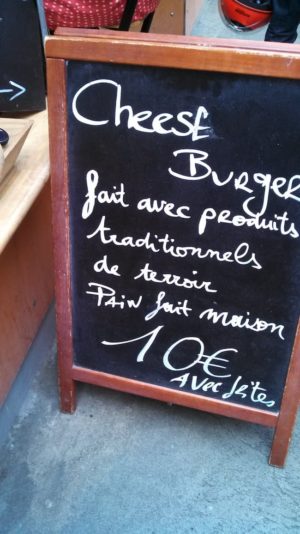 Cheese
Burger
fait avec produits
traditionnels
de terroir
Pain fait maison
10€
Avec frites